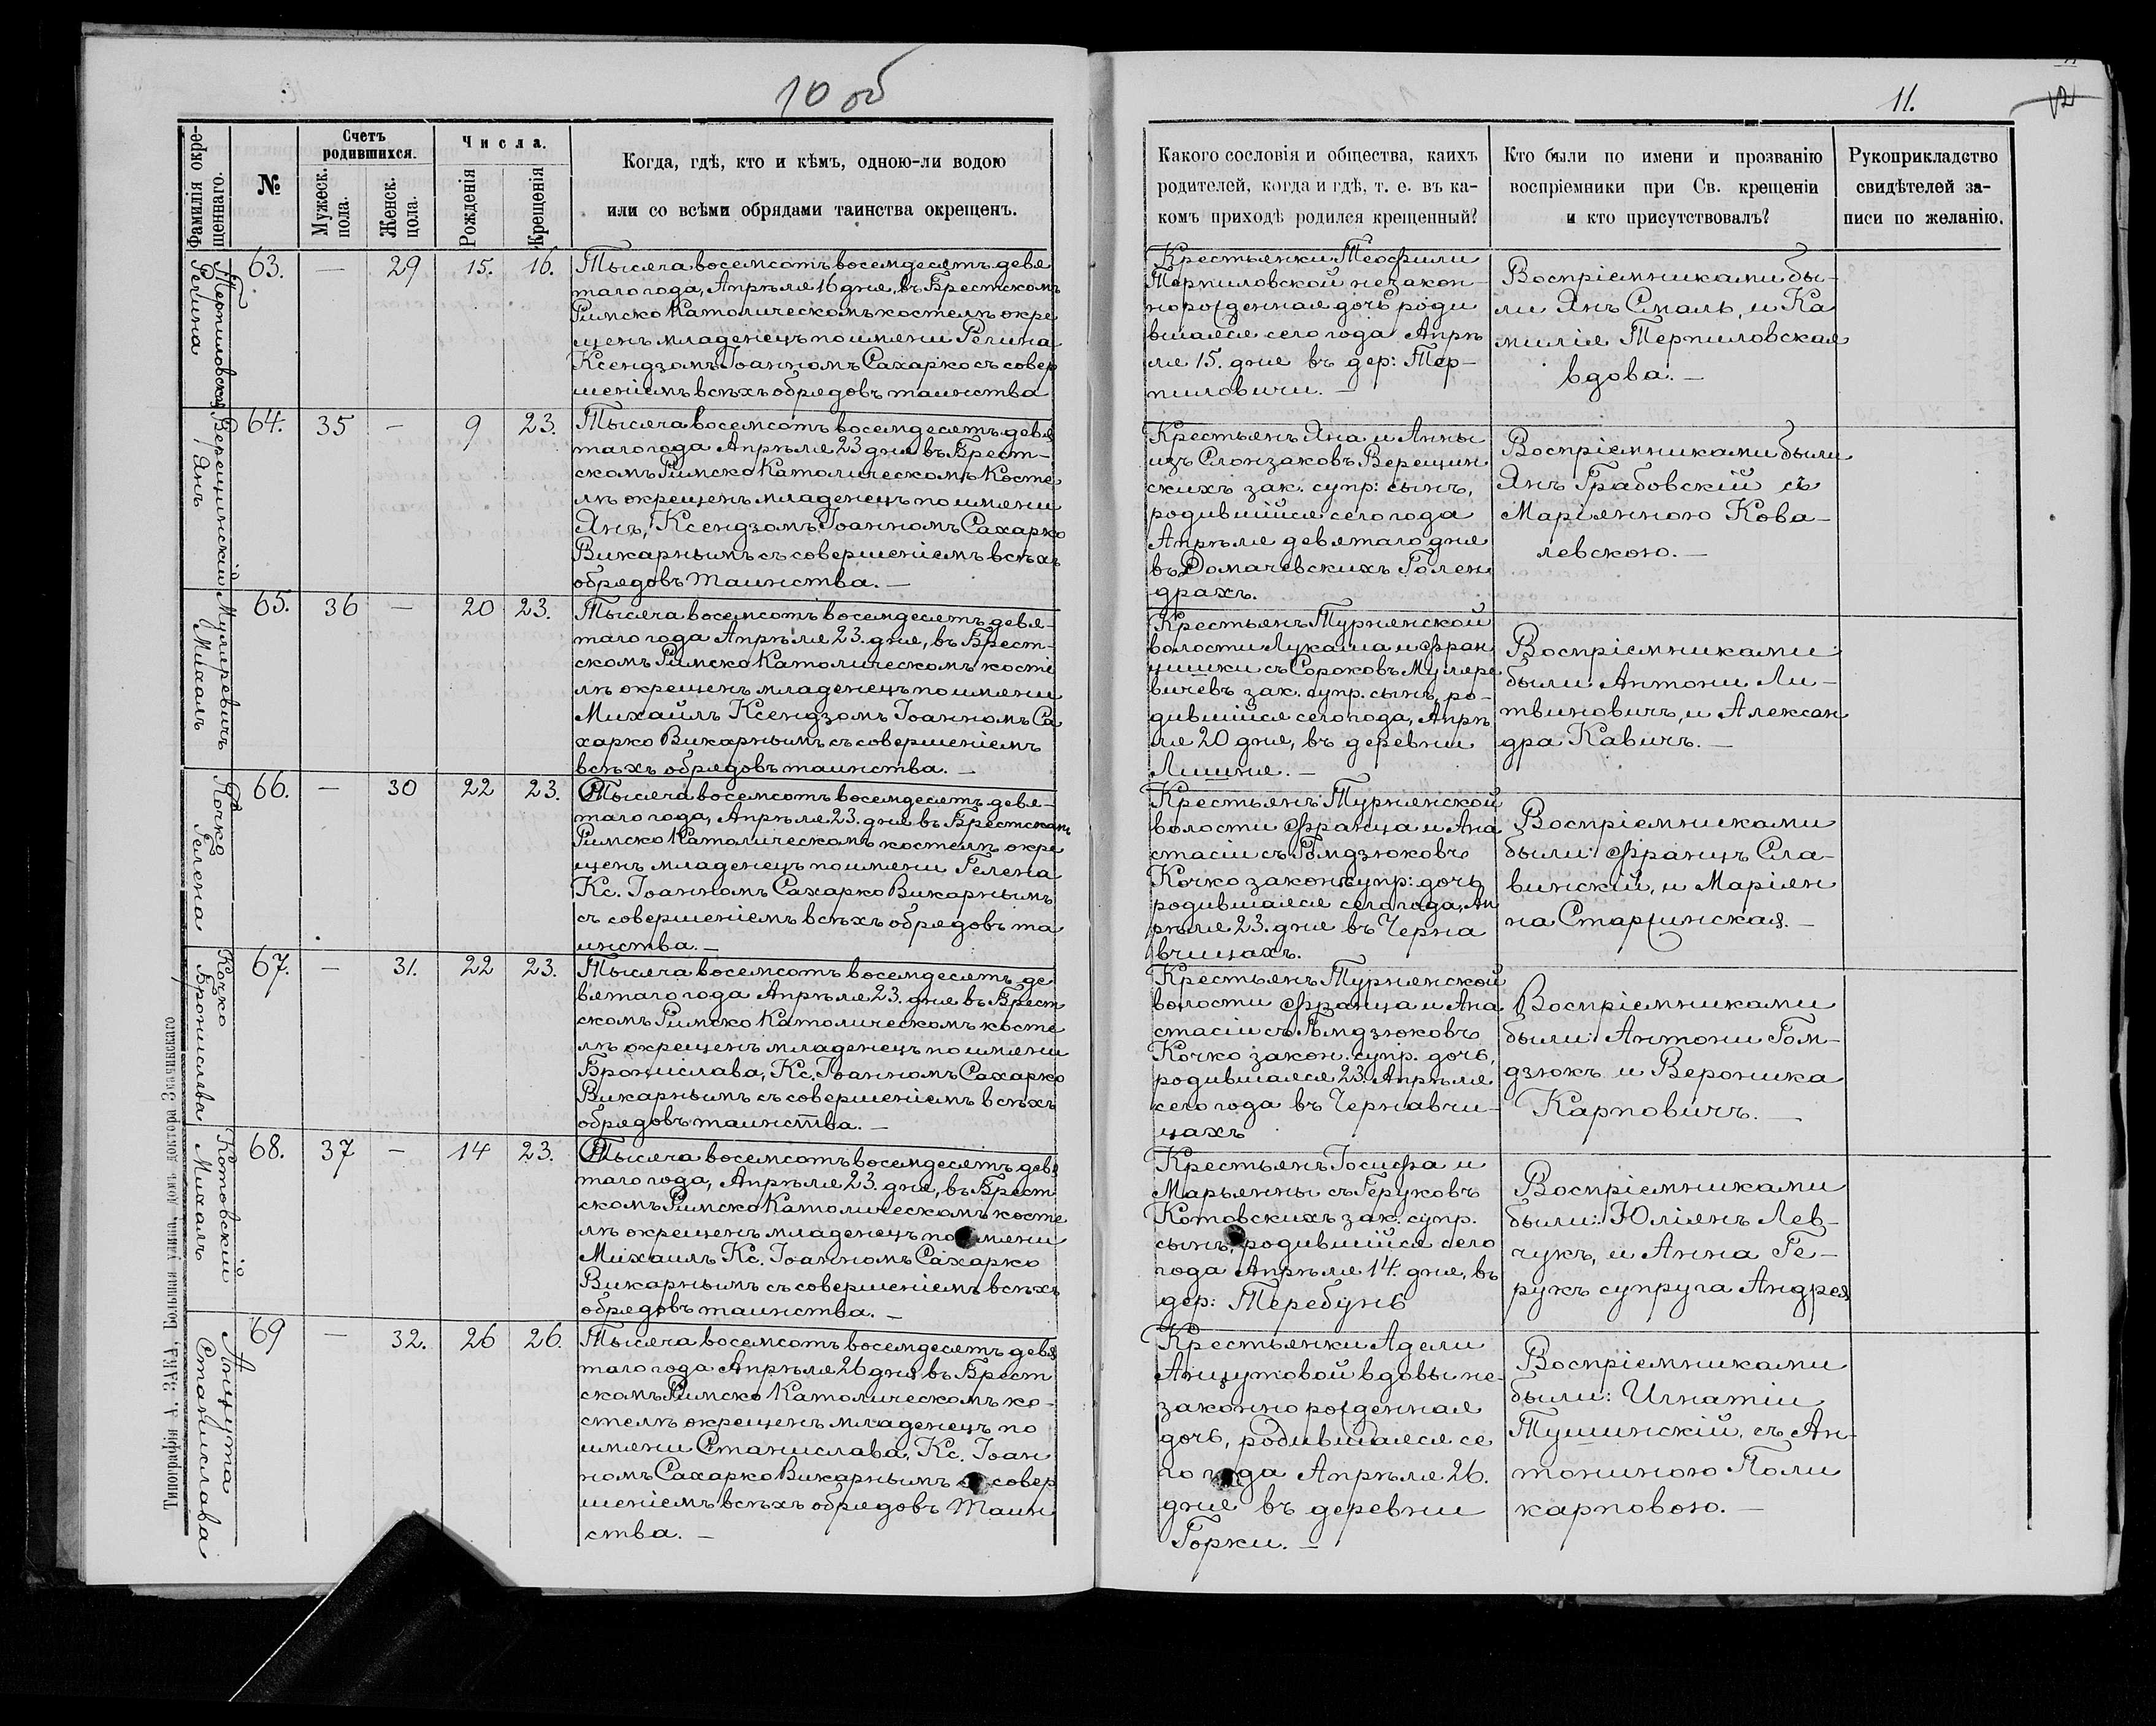 10 об
Фамилія окре-
щеннаго.
№
Счетъ
родившихся.
Мужеск.
пола.
Женск.
пола.
Числа.
Рожденія
Крещенія
Когда, гдѣ, кто и кѣмъ, одною-ли водою
или со всѣми обрядами таинства окрещенъ.
Терпиловская
Регина
63. — 29 15. 16.
Тысяча восемсотъ восемдесятъ девя
таго года, Апрѣля 16 дня, въ Брестскомъ
Римско Католическомъ костелѣ окре
щенъ младенецъ по имени Регина
Ксендзомъ Іоанномъ Сахарко съ совер
шеніемъ всѣхъ обрядовъ таинства
Верещинскій
Янъ
64. 35 — 9 23.
Тысяча восемсотъ восемдесятъ девя
таго года Апрѣля 23 дня въ Брест-
скомъ Римско Католическомъ Косте
лѣ окрещенъ младенецъ по имени
Янъ, Ксендзомъ Іоанномъ Сахарко
Викарнымъ съ совершеніемъ всѣхъ
обрядовъ Таинства. —
Муляревичъ
Михалъ
65. 36 — 20 23.
Тысяча восемсотъ восемдесятъ девя-
таго года Апрѣля 23. дня, въ Брест-
скомъ Римско Католическомъ косте
лѣ окрещенъ младенецъ по имени
Михаилъ Ксендзомъ Іоанномъ Са
харко Викарнымъ съ совершеніемъ
всѣхъ обрядовъ таинства. —
Кочко
Гелена
66. — 30 22 23.
Тысяча восемсотъ восемдесятъ девя-
таго года, Апрѣля 23. дня въ Брестскомъ
Римско Католическомъ костелѣ окре
щенъ младенецъ по имени Гелена
Кс. Іоанномъ Сахарко Викарнымъ
съ совершеніемъ всѣхъ обрядовъ та
инства. —
Кочко
Брониславa
67. — 31. 22 23.
Тысяча восемсотъ восемдесятъ де
вятаго года Апрѣля 23. дня въ Брест
скомъ Римско Католическомъ косте
лѣ окрещенъ младенецъ по имени
Брониславa, Кс. Іоанномъ Сахарко
Викарнымъ съ совершеніемъ всѣхъ
обрядовъ таинства. —
Котовскій
Михалъ
68. 37 — 14 23.
Тысяча восемсотъ восемдесятъ девя
таго года, Апрѣля 23. дня, въ Брест
скомъ Римско Католическомъ косте
лѣ окрещенъ младенецъ по имени
Михаилъ Кс. Іоанномъ Сахарко
Викарнымъ съ совершеніемъ всѣхъ
обрядовъ таинства. —
Анцута
Станислава
69 — 32. 26 26.
Тысяча восемсотъ восемдесятъ девя
таго года Апрѣля 26 дня въ Брест
скомъ Римско Католическомъ ко-
стелѣ окрещенъ младенецъ по
имени Станислава, Кс. Іоан
номъ Сахарко Викарнымъ съ совер
шеніемъ всѣхъ обрядовъ Таин
ства. —
Типографія А. ЗАКА, Большая улица, домъ доктора Значинскаго
11.
12
Какого сословія и общества, каихъ
родителей, когда и гдѣ, т. е. въ ка-
комъ приходѣ родился крещенный?
Кто были по имени и прозванію
воспріемники при Св. крещеніи
и кто присутствовалъ?
Рукоприкладство
свидѣтелей за-
писи по желанію.
Крестьянки Теофили
Терпиловской незакон-
норожденная дочь роди
вшаяся сего года Апрѣ
ля 15. дня въ дер: Тер-
пиловичи. —
Воспріемниками бы-
ли Янъ Смаль, и Ка
милія Терпиловская
вдова. —
Крестьянъ Яна и Анны
изъ Слонзаковъ Верещин
скихъ зак. супр: сынъ,
родившійся сего года
Апрѣля девятаго дня
въ Домачевскихъ Голен
драхъ.
Воспріемниками были
Янъ Грабовскій съ
Маріянною Кова-
левскою. —
Крестьянъ Турнянской
волости Лукаша и Фран
цишки съ Сороковъ Муляре
вичёвъ зак. супр. сынъ, ро-
дившійся сего года, Апрѣ
ля 20 дня, въ деревни
Лишня. —
Воспріемниками
были Антони Ли-
твиновичъ, и Алексан
дра Кавичъ. —
Крестьянъ Турнянской
волости Франца и Ана
стасіи съ Гомдзюковъ
Кочко закон. супр: дочь
родившаяся сего года, Ап
рѣля 23. дня въ Черна
вчицахъ.
Воспріемниками
были: Францъ Сла-
винскій, и Маріян
на Старжинская. —
Крестьянъ Турнянской
волости Франца и Ана
стасіи съ Гомдзюковъ
Кочко закон. супр. дочь,
родившаяся 23. Апрѣля
сего года въ Чернавчи-
цахъ
Воспріемниками
были: Антони Гом-
дзюкъ и Вероника
Карповичъ. —
Крестьянъ Іосифа и
Марьянны съ Геруковъ
Котовскихъ зак. супр.
сынъ, родившійся сего
года Апрѣля 14. дня, въ
дер: Теребунь
Воспріемниками
были: Юліянъ Лев-
чукъ, и Анна Ге-
рукъ супруга Андрея
Крестьянки Адели
Анцутовой вдовы не-
законно рожденная
дочь, родившаяся се
го года Апрѣля 26.
дня въ деревни
Горки. —
Воспріемниками
были: Игнатіи
Тушинскій, съ Ан-
тониною Поли
карповою. —